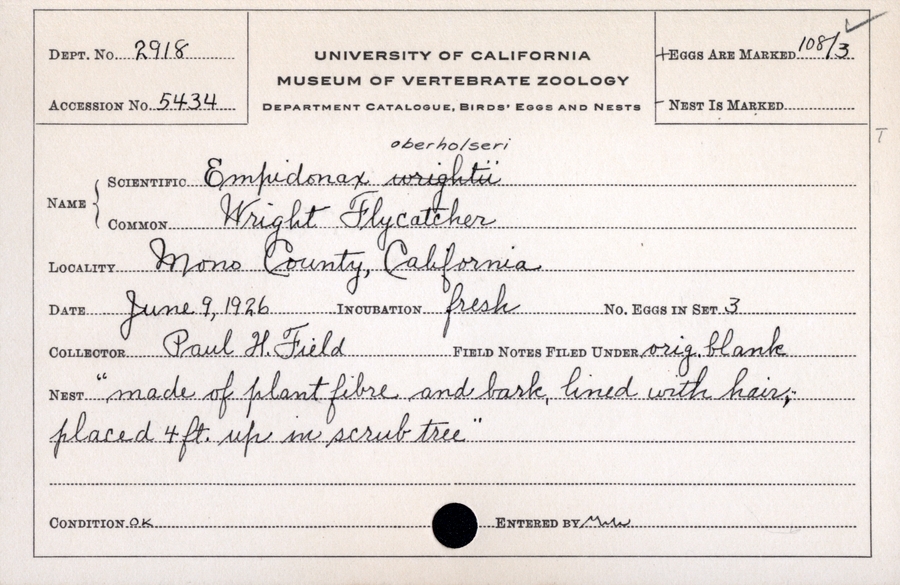 Dept. No. 2918
Accession No. 5434
UNIVERSITY OF CALIFORNIA
MUSEUM OF VERTEBRATE ZOOLOGY
Department Catalogue, Birds' Eggs and Nests
+Eggs Are Marked 108/3
- Nest Is Marked
T
oberholseri
Name { Scientific Empidonax wrightii
Common Wright Flycatcher
Locality Mono County, California
Date June 9, 1926 Incubation fresh No. Eggs in Set 3
Collector Paul H. Field Field Notes Filed Under orig. blank
Nest "made of plant fibre and bark, lined with hair;
placed 4 ft. up in scrub tree"
Condition OK Entered by